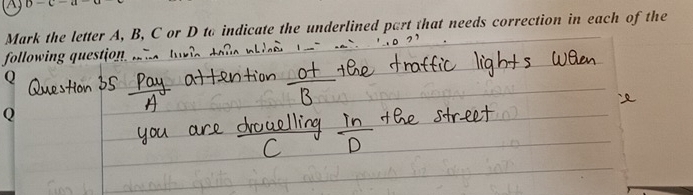 A) b - c - a - d - e
Mark the letter A, B, C or D to indicate the underlined part that needs correction in each of the
following question
Q
Question 35 Pay attention ot the traffic lights when
A B
Q
you are dravelling in the street
C D